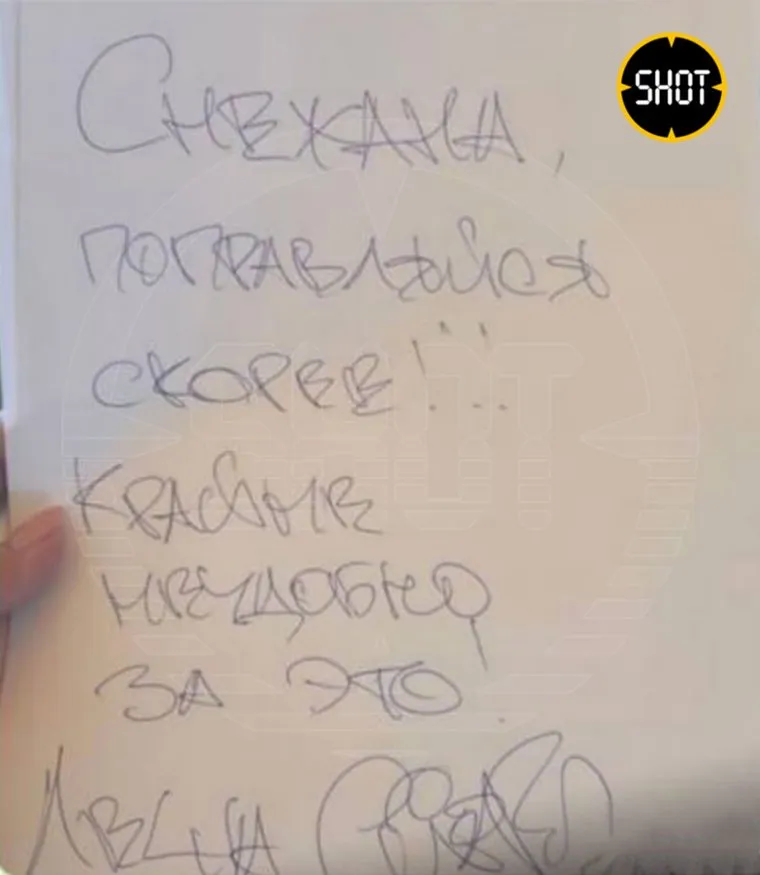 SHOT
Снежана,
поправляйся
скорее!!!
Крайне
неудобно
за это.